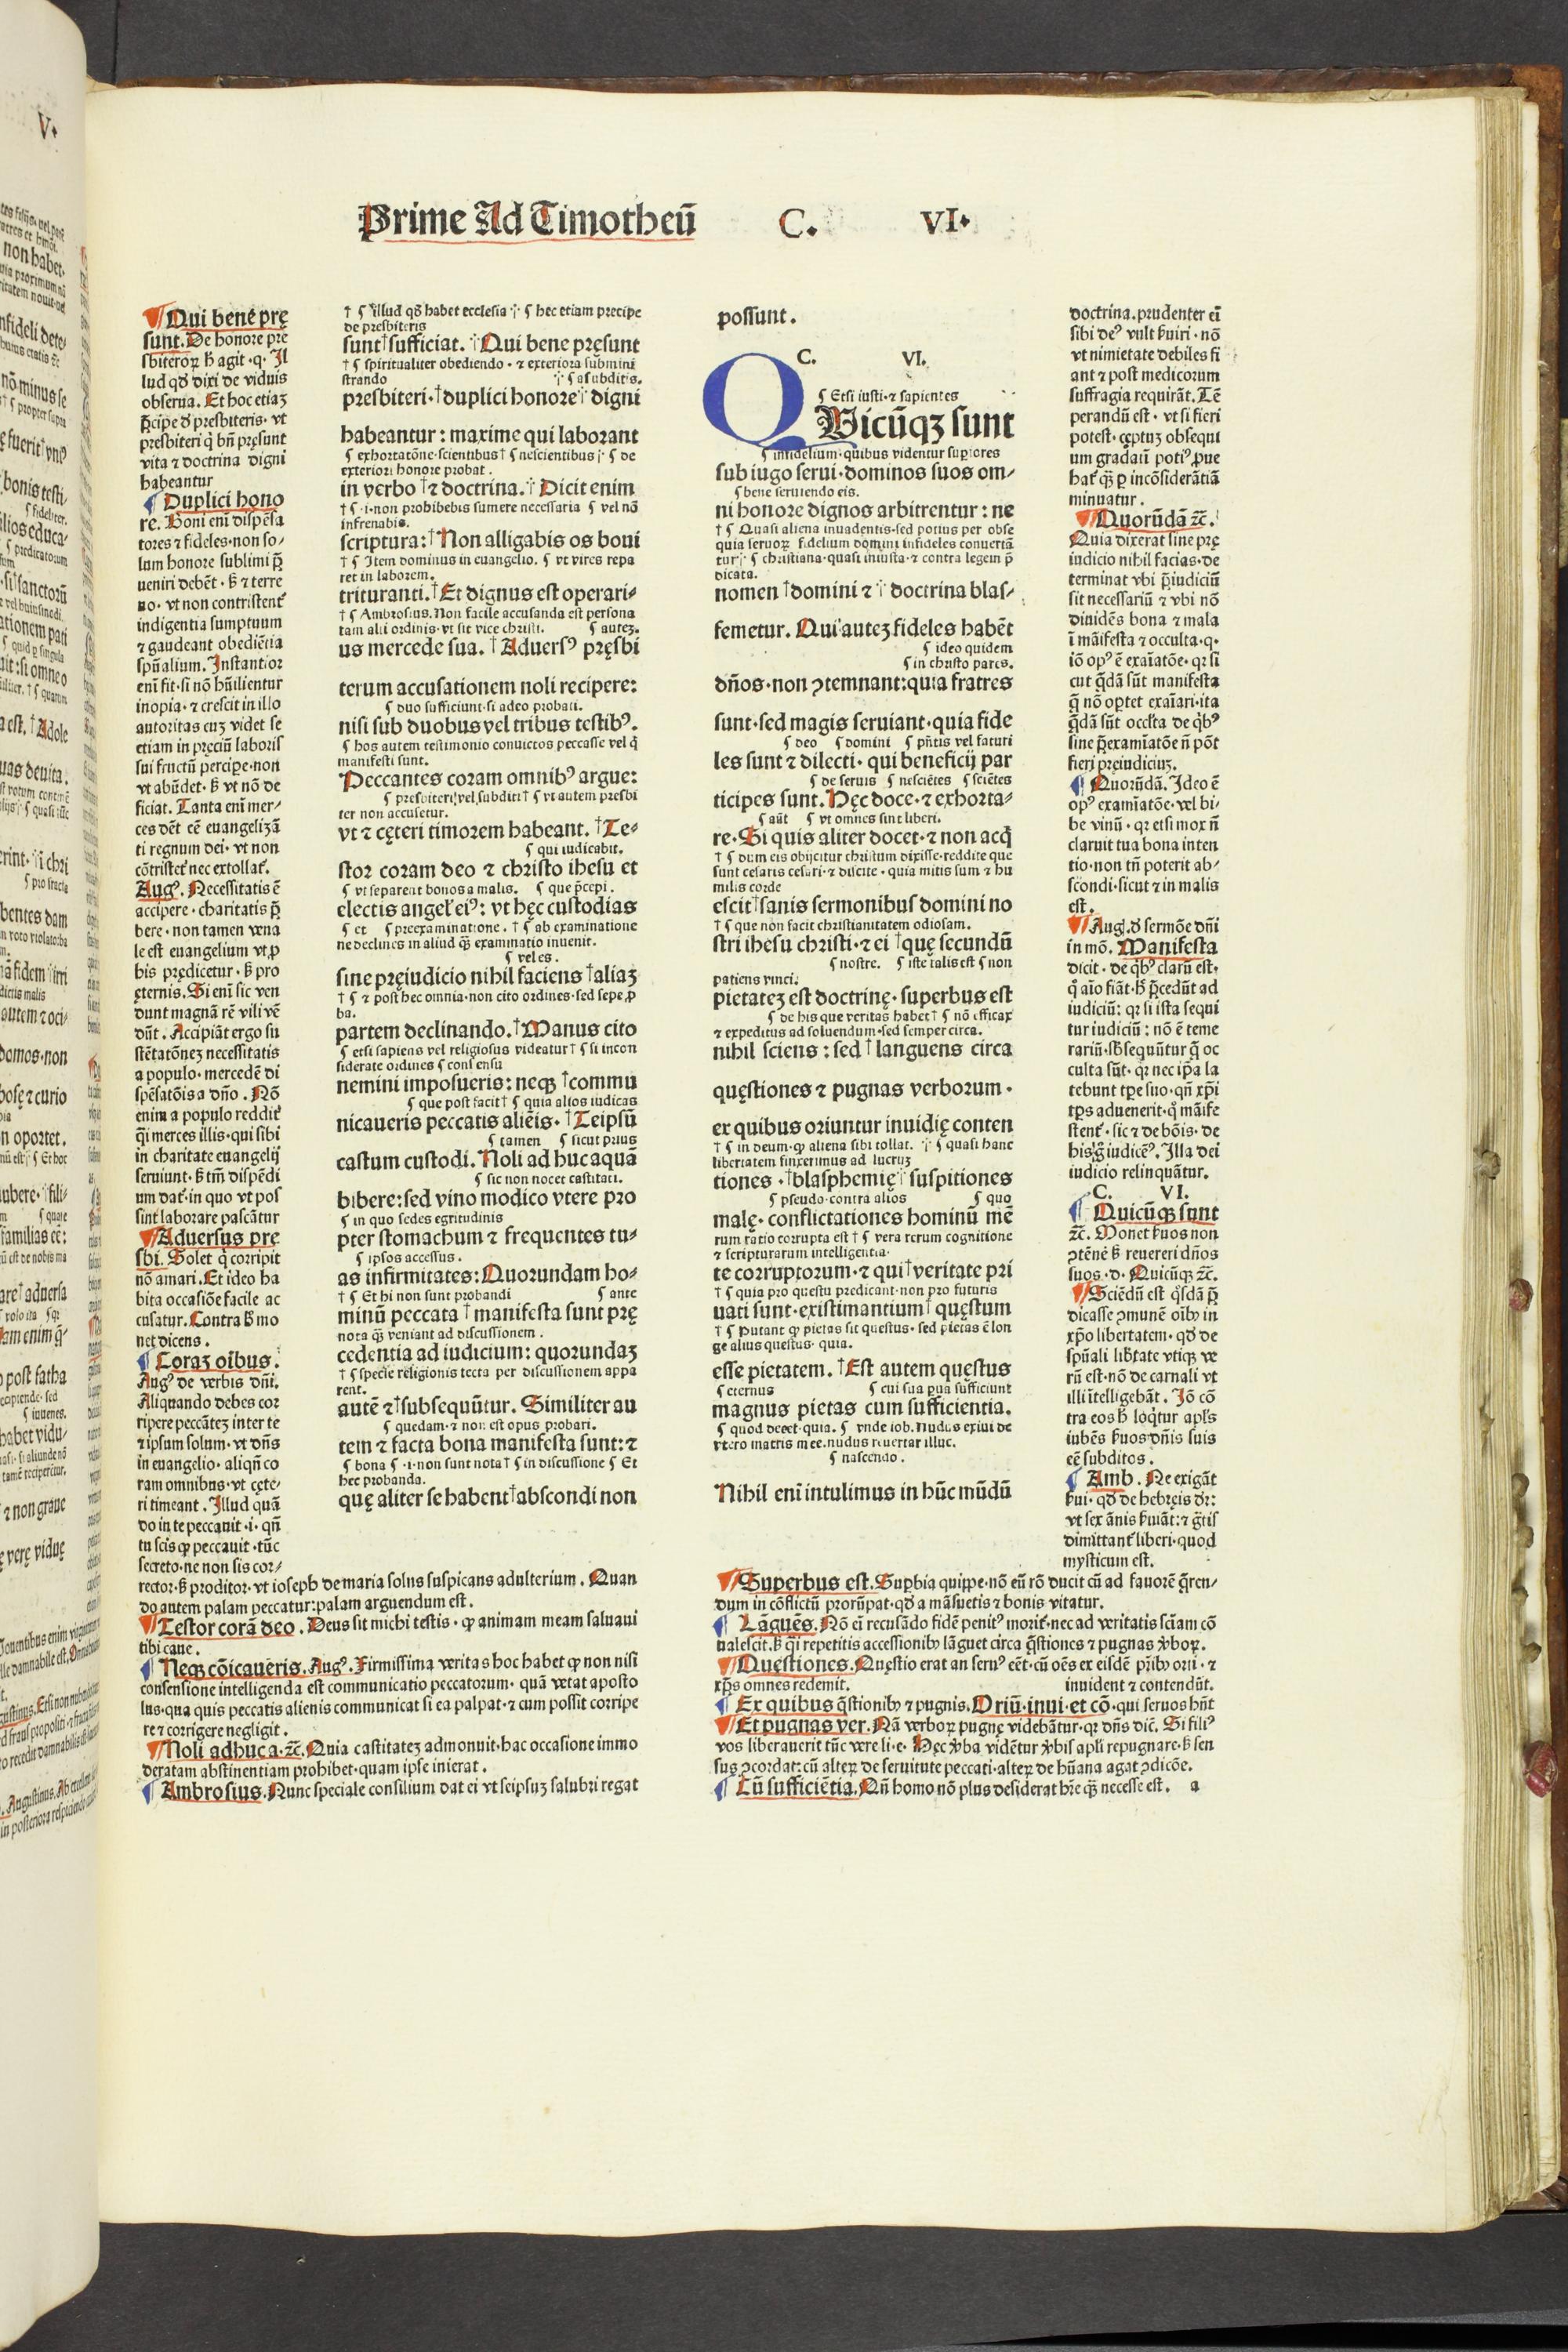 Prime Ad Timotheū C. VI.
Qui bene prę
sunt. De honore pre
sbiteroꝝ h̄ agit .q. Il
lud qd̄ dixi de viduis
obserua. Et hoc etiaꝫ
p̄cipe d̄ presbiteris. vt
presbiteri q̇ bn̄ pręsunt
vita ⁊ doctrina digni
habeantur
Duplici hono
re. Boni eni dispēsa
tores ⁊ fideles.non so/
lum honore sublimi p̄
ueniri debēt . s̄ ⁊ terre
no. vt non contristent᷑
indigentia sumptuum
⁊ gaudeant obediētia
spūalium. Instantior
eni fit.si nō hūilientur
inopia. ⁊ crescit in illo
autoritas cuꝫ videt se
etiam in pręciū laboris
sui fructū percipe.non
vt abūdet. s̄ vt nō de
ficiat. Tanta eni mer/
ces dēt eē euangelizā
ti regnum dei. vt non
cōtristet᷑ nec extollat᷑.
Augꝰ. Necessitatis ē
accipere . charitatis p̄
bere . non tamen vena
le est euangelium vt ꝓ
his prędicetur . s̄ pro
ęternis. Si eni sic ven
dunt magnā rē vili vē
dūt . Accipiāt ergo su
stētatōneꝫ necessitatis
a populo. mercedē di
spēsatōis a dn̄o . Nō
enim a populo reddit᷑
q̄i merces illis.qui sibi
in charitate euangelij
seruiunt. s̄ tm̄ dispēdi
um dat᷑.in quo vt pos
sint laborare pascātur
Aduersus prę
sbi. Solet q̇ corripit
nō amari. Et ideo ha
bita occasiōe facile ac
cusatur. Contra s̄ mo
net dicens.
Coraꝫ oibus.
Augꝰ de verbis dn̄i.
Aliquando debes cor
ripere peccāteꝫ inter te
⁊ ipsum solum. vt dn̄s
in euangelio. aliqn̄ co
ram omnibus. vt cęte/
ri timeant . Illud quā
do in te peccauit .i. qn̄
tu scis ꝙ peccauit .tūc
secreto.ne non sis cor/
rector.s̄ proditor. vt ioseph de maria solus suspicans adulterium. Quan
do autem palam peccatur:palam arguendum est.
Testor corā deo . Deus sit michi testis . ꝙ animam meam saluaui
tibi caue.
Neqꝫ cōicaueris. Augꝰ. Firmissima veritas hoc habet ꝙ non nisi
consensione intelligenda est communicatio peccatorum. quā vetat aposto
lus.qua quis peccatis alienis communicat si ea palpat. ⁊ cum possit corripe
re ⁊ corrigere negligit .
Noli adhuc a. ⁊c̄. Quia castitateꝫ admonuit.hac occasione immo
deratam abstinentiam prohibet.quam ipse inierat .
Ambrosius. Nunc speciale consilium dat ei vt seipsuꝫ salubri regat
† ¶ Illud qd̄ habet ecclesia ¶ hec etiam precipe
de presbiteris
sunt†sufficiat. Qui bene pręsunt
† ¶ spiritualiter obediendo . ⁊ exteriora submini
strando ¶ a subditis.
presbiteri.†duplici honore digni
habeantur: maxime qui laborant
¶ exhortatōne.scientibus† ¶ nescientibus ¶ de
exteriori honore probat .
in verbo †⁊ doctrina. Dicit enim
† ¶ .i.non prohibebis sumere necessaria ¶ vel nō
infrenabis.
scriptura:†Non alligabis os boui
† ¶ Item dominus in euangelio. ¶ vt vires repa
ret in laborem.
trituranti.†Et dignus est operari/
† ¶ Ambrosius. Non facile accusanda est persona
tam alti ordinis.vt sit vice christi. ¶ auteꝫ.
us mercede sua. †Aduersꝰ pręsbi
terum accusationem noli recipere:
¶ duo sufficiunt.si adeo probati.
nisi sub duobus vel tribus testibꝰ.
¶ hos autem testimonio conuictos peccasse vel q̇
manifesti sunt.
Peccantes coram omnibꝰ argue:
¶ presbiteri vel subditi† ¶ vt autem presbi
ter non accusetur.
vt ⁊ cęteri timorem habeant. †Te/
¶ qui iudicabit.
stor coram deo ⁊ christo ihesu et
¶ vt separent bonos a malis. ¶ que p̄cepi.
electis angeł eiꝰ: vt hęc custodias
¶ et ¶ preexaminatione. † ¶ ab examinatione
ne declines in aliud q̄ꝫ examinatio inuenit.
¶ vel es.
sine pręiudicio nihil faciens †aliaꝫ
† ¶ ⁊ post hec omnia.non cito ordines.sed sepe ꝓ
ba.
partem declinando.†Manus cito
¶ etsi sapiens vel religiosus videatur† ¶ si incon
siderate ordines ¶ consensu
nemini imposueris: neqꝫ †commu
¶ que post facit† ¶ quia alios iudicas
nicaueris peccatis alieis. †Teipsū
¶ tamen ¶ sicut prius
castum custodi. Noli ad huc aquā
¶ sic non nocet castitati.
bibere:sed vino modico vtere pro
¶ in quo sedes egritudinis
pter stomachum ⁊ frequentes tu/
¶ ipsos accessus.
as infirmitates: Quorundam ho/
† ¶ Et hi non sunt probandi ¶ ante
minū peccata †manifesta sunt prę
nota q̄ꝫ veniant ad discussionem .
cedentia ad iudicium: quorundaꝫ
† ¶ specie religionis tecta per discussionem appa
rent.
autē ⁊†subsequūtur. Similiter au
¶ quedam.⁊ non est opus probari.
tem ⁊ facta bona manifesta sunt:⁊
¶ bona ¶ .i.non sunt nota† ¶ in discussione ¶ Et
hec probanda.
quę aliter se habent†abscondi non
possunt.
C. VI.
¶ Etsi iusti.⁊ sapientes
QVicūqꝫ sunt
¶ infidelium.quibus videntur supiores
sub iugo serui.dominos suos om/
¶ bene seruiendo eis.
ni honore dignos arbitrentur: ne
† ¶ Quasi aliena inuadentis.sed potius per obse
quia seruoꝝ fidelium domini infideles conuertā
tur ¶ christiana.quasi iniusta.⁊ contra legem p̄
dicata.
nomen †domini ⁊ doctrina blas/
femetur. Qui auteꝫ fideles habēt
¶ ideo quidem
¶ in christo pares.
dn̄os.non ↄtemnant:quia fratres
sunt.sed magis seruiant.quia fide
¶ deo ¶ domini ¶ pn̄tis vel futuri
les sunt ⁊ dilecti. qui beneficij par
¶ de seruis ¶ nesciētes ¶ sciētes
ticipes sunt. Hęc doce.⁊ exhorta/
¶ aūt ¶ vt omnes sint liberi.
re. Si quis aliter docet.⁊ non acq̇
† ¶ dum eis obijcitur christum dixisse.reddite que
sunt cesaris cesari.⁊ discite . quia mitis sum ⁊ hu
milis corde
escit†sanis sermonibus domini no
† ¶ que non facit christianitatem odiosam.
stri ihesu christi.⁊ ei †quę secundū
¶ nostre. ¶ iste talis est ¶ non
patiens vinci.
pietateꝫ est doctrinę. superbus est
¶ de his que veritas habet† ¶ nō efficax
⁊ expeditus ad soluendum.sed semper circa.
nihil sciens : sed †languens circa
quęstiones ⁊ pugnas verborum.
ex quibus oriuntur inuidię conten
† ¶ in deum.ꝙ aliena sibi tollat. ¶ quasi hanc
libertatem finxerimus ad lucruꝫ
tiones .†blasphemię suspitiones
¶ pseudo.contra alios ¶ quo
malę. conflictationes hominū mē
rum ratio corrupta est† ¶ vera rerum cognitione
⁊ scripturarum intelligentia.
te corruptorum.⁊ qui†veritate pri
† ¶ quia pro questu predicant.non pro futuris
uati sunt.existimantium†quęstum
† ¶ Putant ꝙ pietas sit questus. sed pietas ē lon
ge alius questus. quia.
esse pietatem. †Est autem quęstus
¶ eternus ¶ cui sua ꝑua sufficiunt
magnus pietas cum sufficientia.
¶ quod decet.quia. ¶ vnde iob. Nudus exiui de
vtero matris mee.nudus reuertar illuc.
¶ nascendo.
Nihil eni intulimus in hūc mūdū
doctrina.prudenter ei
sibi deꝰ vult s̄uiri . nō
vt nimietate debiles fi
ant ⁊ post medicorum
suffragia requirāt. Tē
perandū est . vt si fieri
potest. cęptuꝫ obsequi
um gradatī potiꝰ ꝓue
hat᷑ q̄ꝫ ꝑ incōsiderātiā
minuatur.
Quorūdā ⁊c̄.
Quia dixerat sine prę
iudicio nihil facias.de
terminat vbi p̄iudiciū
sit necessariū ⁊ vbi nō
diuidēs bona ⁊ mala
ī māifesta ⁊ occulta.q.
iō opꝰ ē exaīatōe. qꝛ si
cut q̄dā sūt manifesta
q̄ nō oꝑtet exaīari.ita
q̄dā sūt occłta de q̇bꝰ
sine p̄examīatōe n̄ pōt
fieri pręiudiciuꝫ.
Quorūdā. Ideo ē
opꝰ examīatōe. vel bi/
be vinū . qꝛ etsi mox n̄
claruit tua bona inten
tio.non tn̄ poterit ab/
scondi.sicut ⁊ in malis
est.
Aug.d̄ sermōe dn̄i
in mō. Manifesta
dicit . de q̇bꝰ clarū est.
q̇ aīo fiāt.h̄ p̄cedūt ad
iudiciū: qꝛ si ista sequi
tur iudiciū : nō ē teme
rariū.sb̄sequūtur q̄ oc
culta sūt. qꝛ nec ip̄a la
tebunt tp̄e suo.qn̄ xp̄i
tp̄s aduenerit. q̊ māife
stent᷑. sic ⁊ de bōis. de
his g̊ iudicēꝰ. Illa dei
iudicio relinquātur.
C. VI.
Quicūqꝫ sunt
⁊c̄. Monet s̄uos non
ↄtēne s̄ reuereri dn̄os
suos .d. Quicūqꝫ ⁊c̄.
Sciēdū est q̇sdā p̄
dicasse ↄmunē oībꝰ in
xp̄o libertatem. qd̄ de
spūali lib̄tate vtiqꝫ ve
rū est.nō de carnali vt
illi ītelligebāt . Iō cō
tra eos h̄ loq̇tur apl̄s
iubēs s̄uos dn̄is suis
eē subditos.
Amb. Ne exigāt
s̄ui. qd̄ de hebręis dr̄:
vt sex ānis s̄uiāt:⁊ g̊tis
dimittant᷑ liberi.quod
mysticum est.
Superbus est. Suꝑbia quippe.nō eū rō ducit cū ad fauorē q̄ren/
dum in cōflictū prorūpat.qd̄ a māsuetis ⁊ bonis vitatur.
Lāguēs. Nō ei recusādo fidē penitꝰ morit᷑.nec ad veritatis sciam cō
ualescit.s̄ q̄i repetitis accessionibꝰ lāguet circa q̄stiones ⁊ pugnas v̄boꝝ.
Quęstiones. Quęstio erat an seruꝰ eēt.cū oēs ex eisdē pr̄ibꝰ orti . ⁊
xp̄s omnes redemit. inuident ⁊ contendūt.
Ex quibus q̄stionibꝰ ⁊ pugnis. Oriū.inui.et cō. qui seruos hn̄t
Et pugnas ver. Nā verboꝝ pugnę videbātur.qꝛ dn̄s dic̄. Si filiꝰ
vos liberauerit tūc vere li.e. Hęc v̄ba vidētur v̄bis apl̄i repugnare.s̄ sen
sus ↄcordat:cū alteꝝ de seruitute peccati.alteꝝ de hūana agat ↄdicōe.
Cū sufficiētia. Qn̄ homo nō plus desiderat hr̄e q̄ꝫ necesse est. a